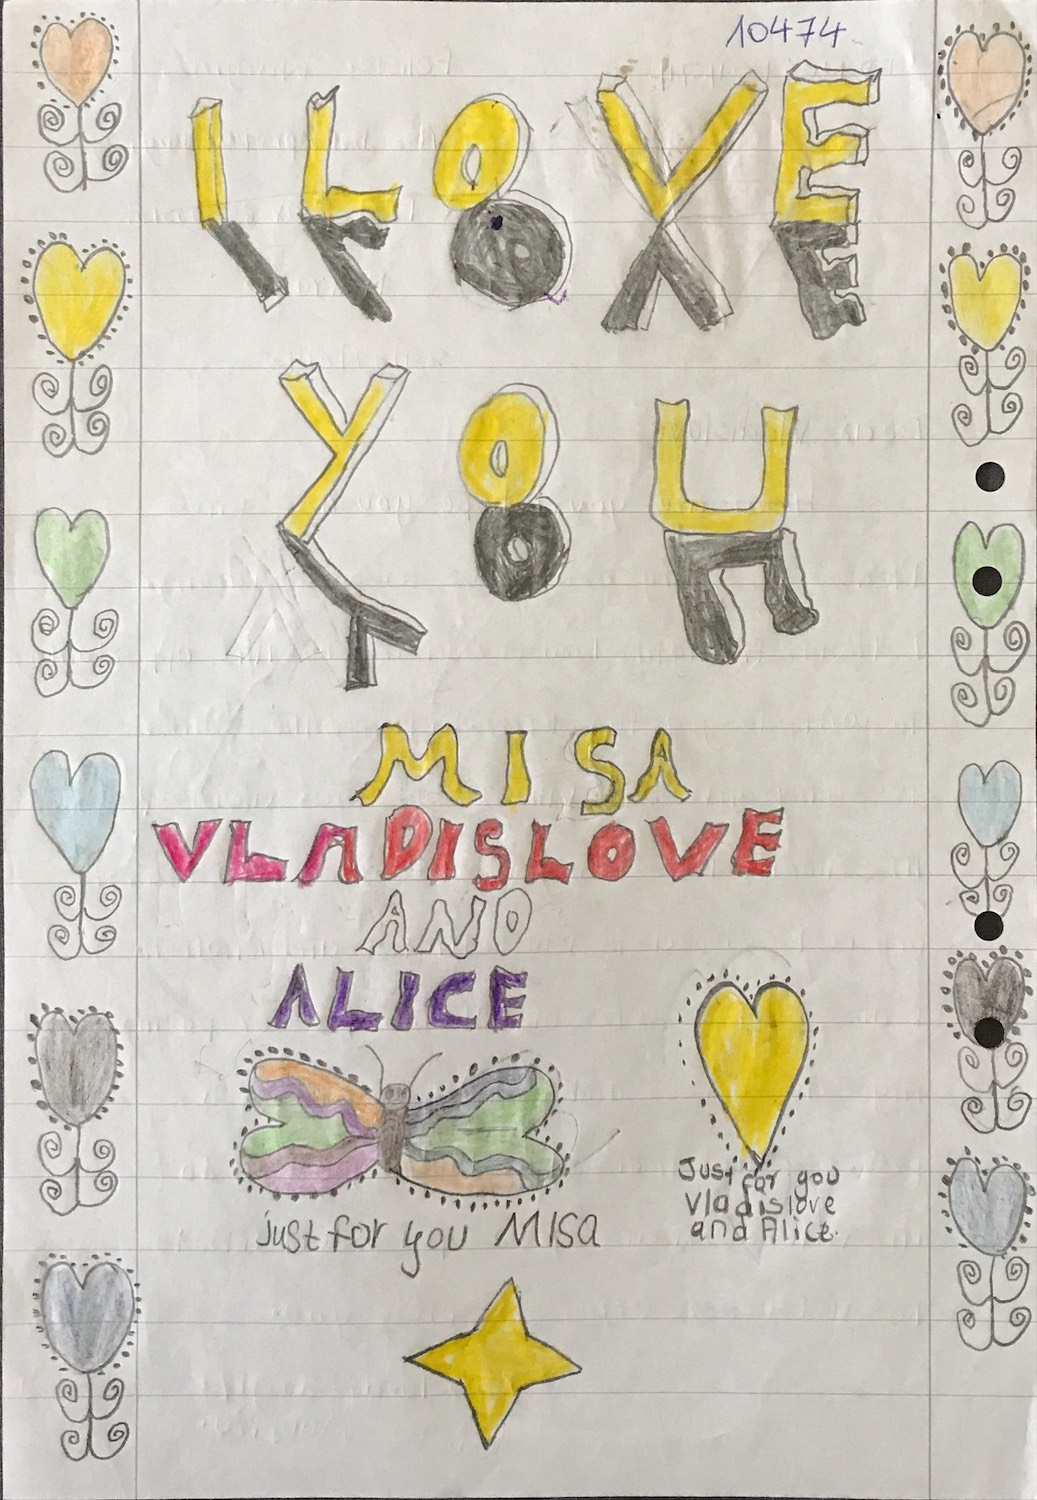 10474
I LOVE
YOU
MISA
VLADISLOVE
AND
ALICE
Just for you
Vladislove
and Alice.
just for you Misa